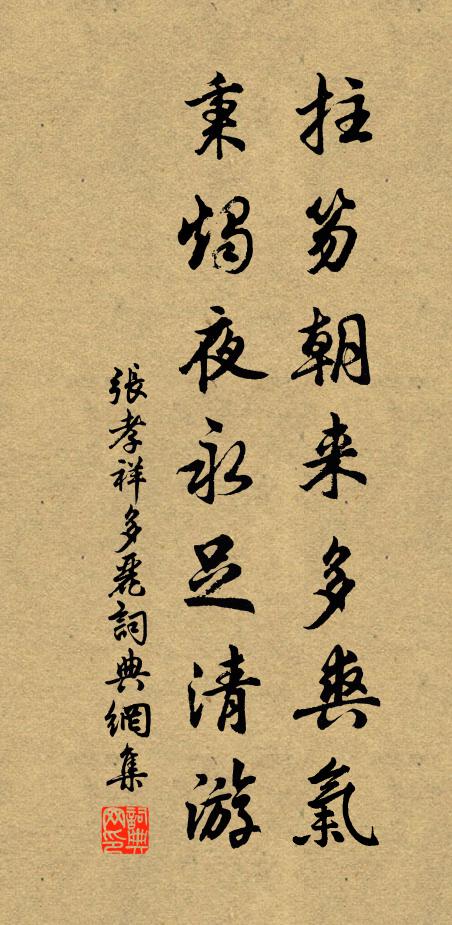 拄笏朝来多爽氣
秉燭夜永足清游
張孝祥多麗詞典網集
詞典網印